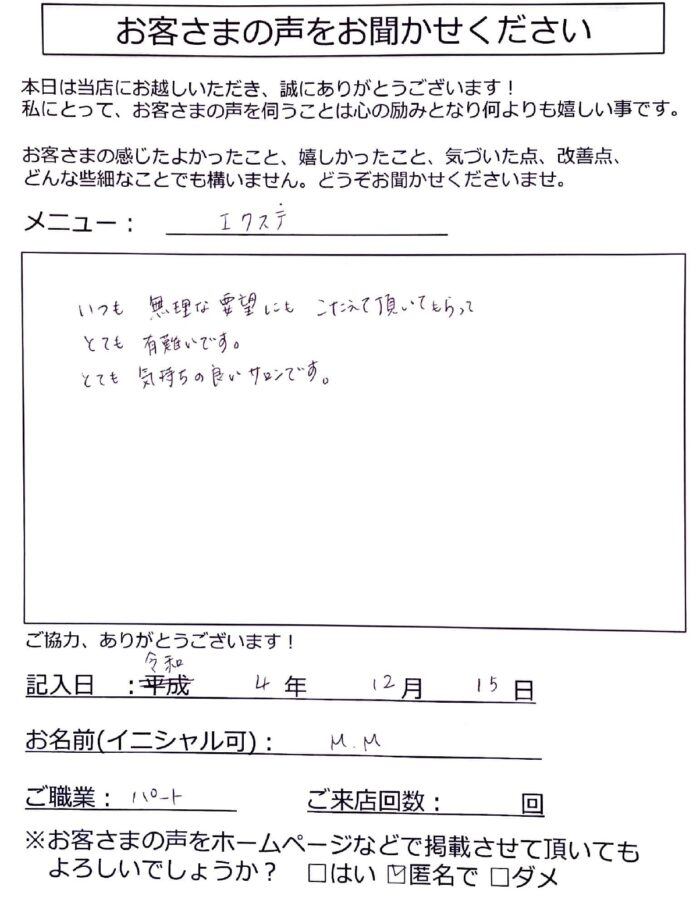 お客さまの声をお聞かせください
本日は当店にお越しいただき、誠にありがとうございます！
私にとって、お客さまの声を伺うことは心の励みとなり何よりも嬉しい事です。
お客さまの感じたよかったこと、嬉しかったこと、気づいた点、改善点、
どんな些細なことでも構いません。どうぞお聞かせくださいませ。
メニュー： エクステ
いつも 無理な要望にも こたえて頂いてもらって
とても 有難いです。
とても 気持ちの良いサロンです。
ご協力、ありがとうございます！
令和
記入日 ：平成 4 年 12 月 15 日
お名前(イニシャル可)： M.M
ご職業： パート ご来店回数： 回
※お客さまの声をホームページなどで掲載させて頂いても
よろしいでしょうか？ □はい ☑匿名で □ダメ